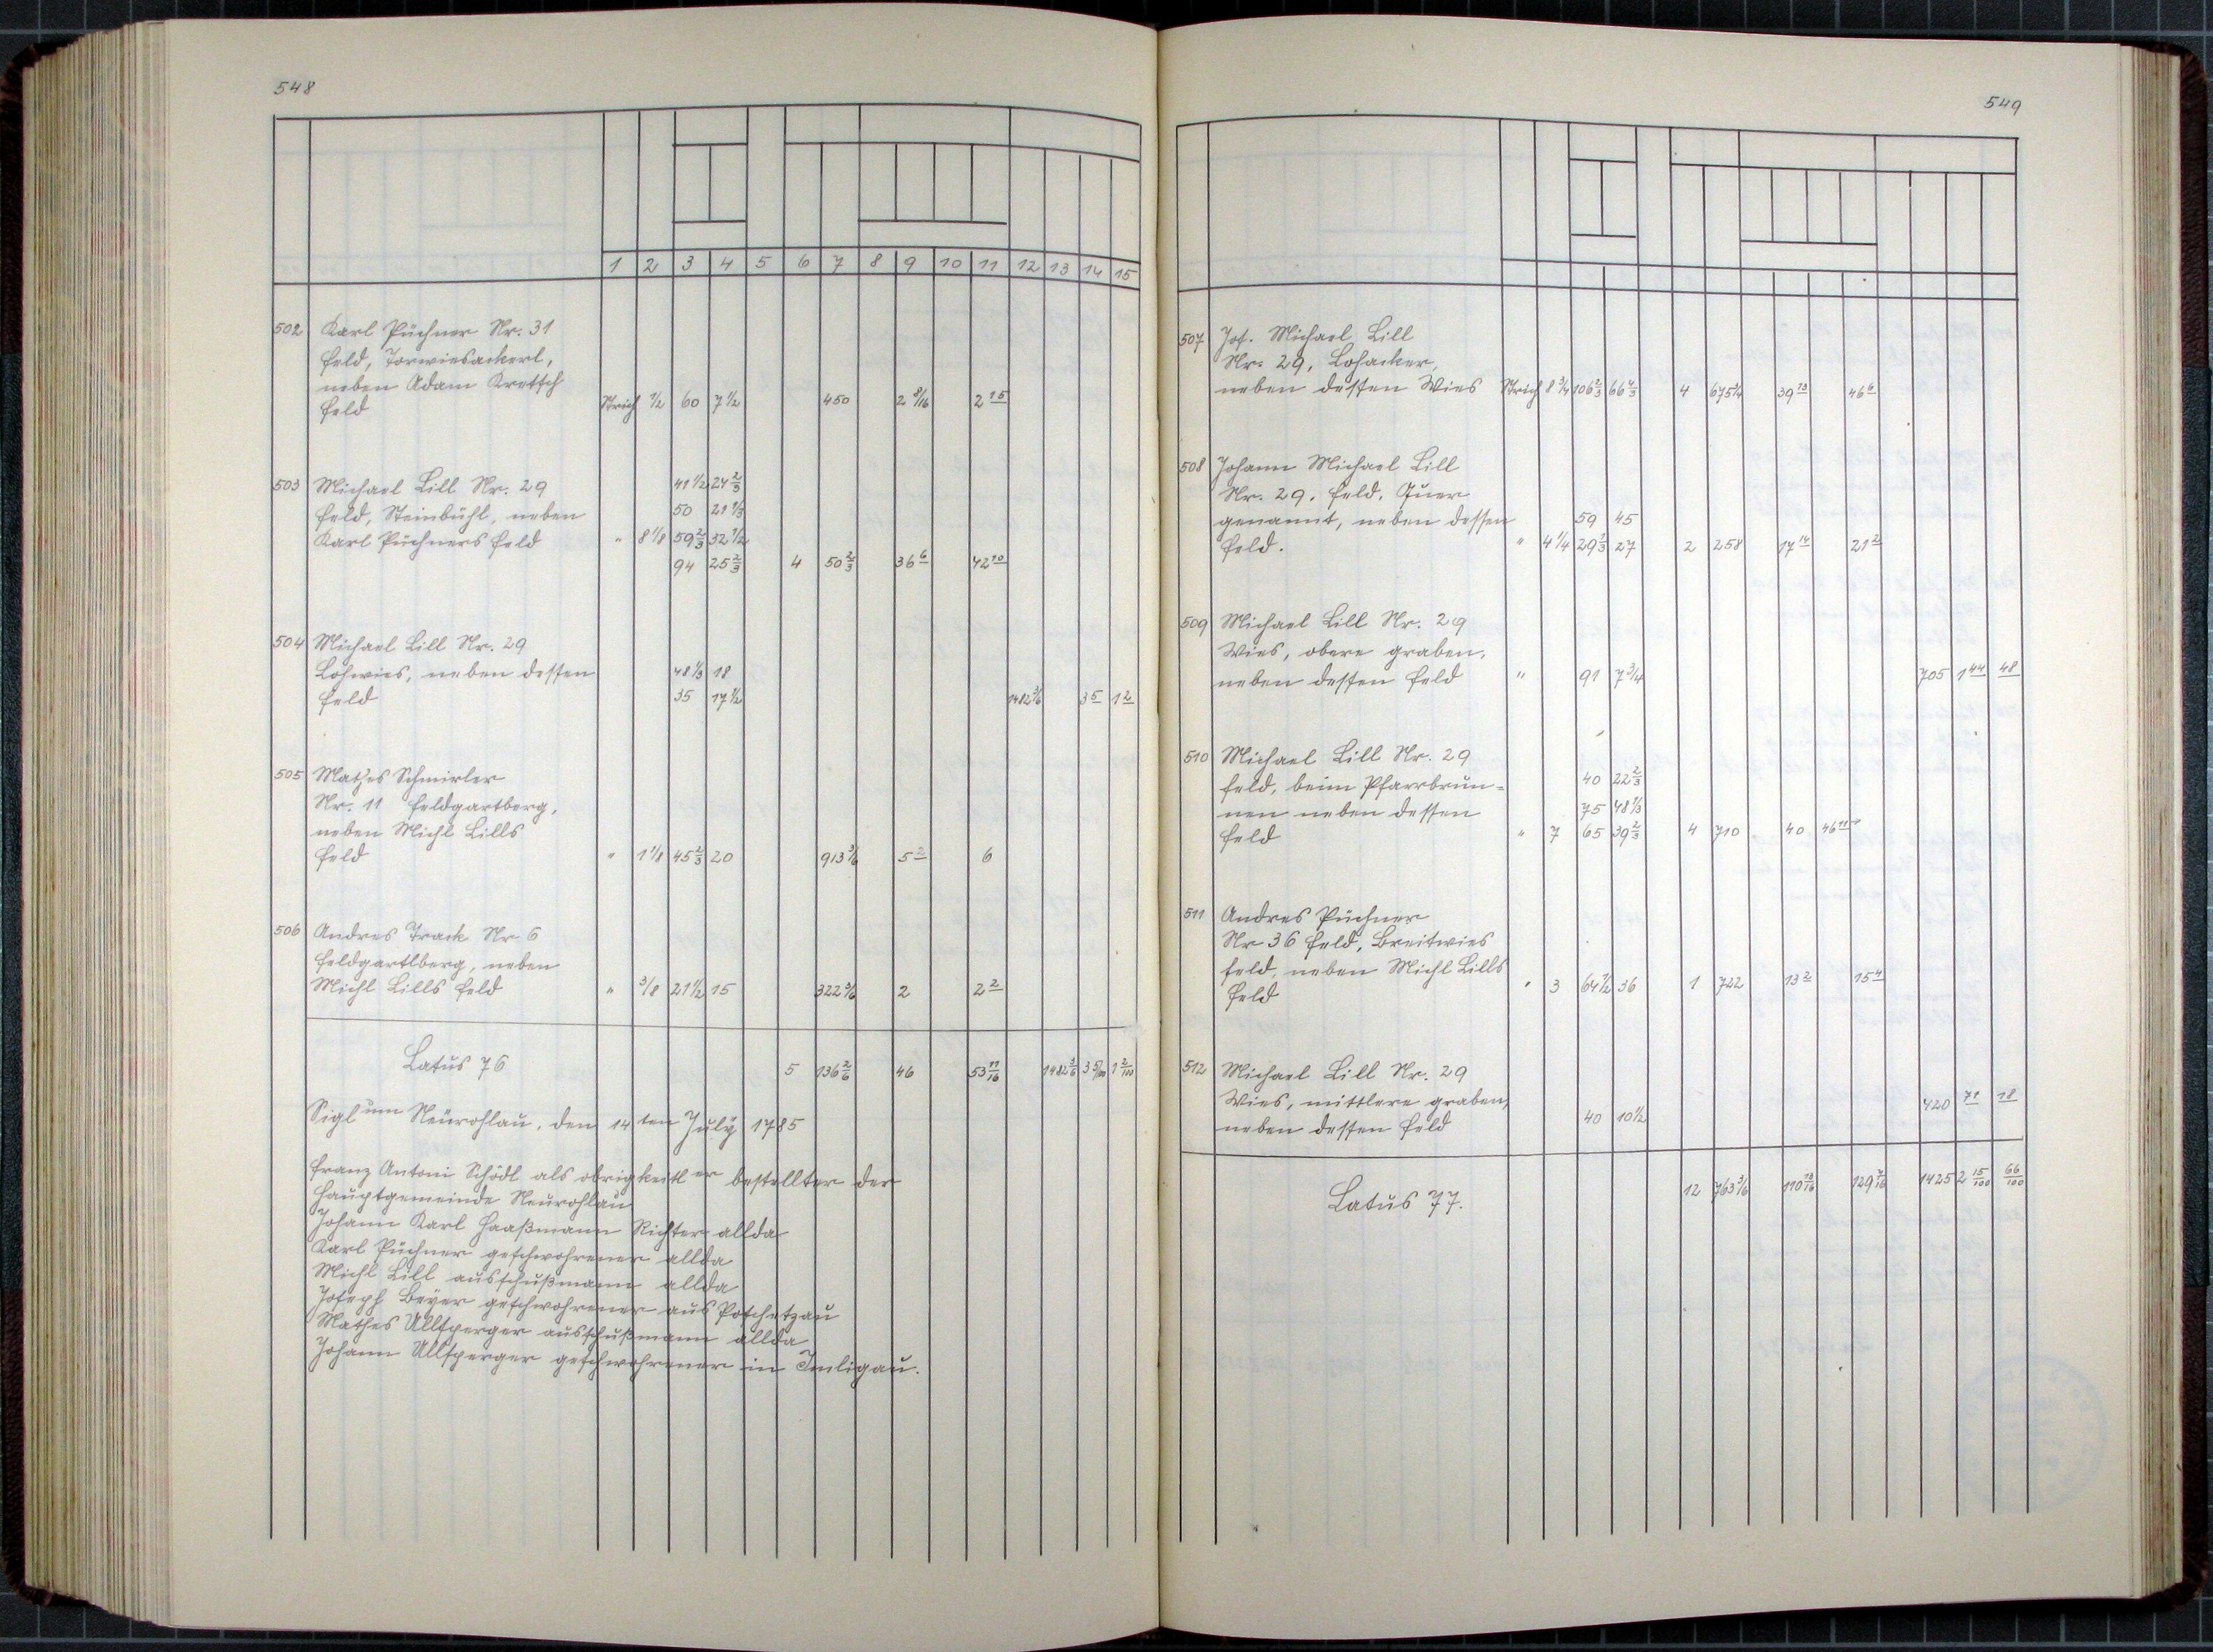 548
1 2 3 4 5 6 7 8 9 10 11 12 13 14 15
502 Karl Püchner Nr. 31
Feld, Torwiesackerl,
neben Adam Kretsch
Feld Strich 1/2 60 7 1/2 450 2 8/16 2 15
503 Michael Lill Nr. 29 41 1/2 24 2/3
Feld, Steinbühl, neben 50 21 1/3
Karl Püchners Feld " 8 1/8 59 2/3 32 1/2
94 25 2/3 4 50 2/3 36 6 42 10
504 Michael Lill Nr. 29
Lohwies, neben dessen 48 1/3 18
Feld 35 17 1/2 1482 3/6 3 5 1 2
505 Mathes Schmirler
Nr. 11 Feldgartberg,
neben Michl Lills
Feld " 1 1/8 45 2/3 20 913 3/6 5 2 6
506 Andres Track Nr 6
Feldgartlberg, neben
Michl Lills Feld " 3/8 21 1/2 15 322 3/6 2 2 2
Latus 76 5 136 2/6 46 53 11/16 1482 3/6 3 5/100 1 2/100
Siglum Neürohlau, den 14ten July 1785
Franz Antoni Schödl als obrigkeitler bestellter der
Hauptgemeinde Neurohlau
Johann Karl Haaßmann Richter allda
Karl Püchner geschwohrener allda
Michl Lill ausschußmann allda
Joseph Beyer geschwohrener aus Potschetzau
Mathes Ullsperger ausschußmann allda
Johann Ullsperger geschwohrener in Imligau.
549
507 Jos. Michael Lill
Nr. 29, Lohacker,
neben dessen Wies Strich 8 3/4 106 2/3 66 4/3 4 675 1/4 39 13 46 6
508 Johann Michael Lill
Nr. 29. Feld, Quer
genannt, neben dessen 59 45
Feld. " 4 1/4 29 1/3 27 2 258 17 14 21 2
509 Michael Lill Nr. 29
Wies, obere graben,
neben dessen Feld " 91 7 3/4 705 1 44 48
510 Michael Lill Nr. 29
Feld, beim Pfarrbrun= 40 22 2/3
nen neben dessen 75 48 1/3
Feld " 7 65 39 2/3 4 710 40 46 11
511 Andres Püchner
Nr 36 Feld, Breitwies
feld, neben Michl Lills
Feld " 3 64 1/2 36 1 722 13 2 15 4
512 Michael Lill Nr. 29
Wies, mittlere graben,
neben dessen Feld 40 10 1/2 420 71 18
Latus 77. 12 763 3/6 110 13/16 129 7/16 1425 2 15/100 66/100